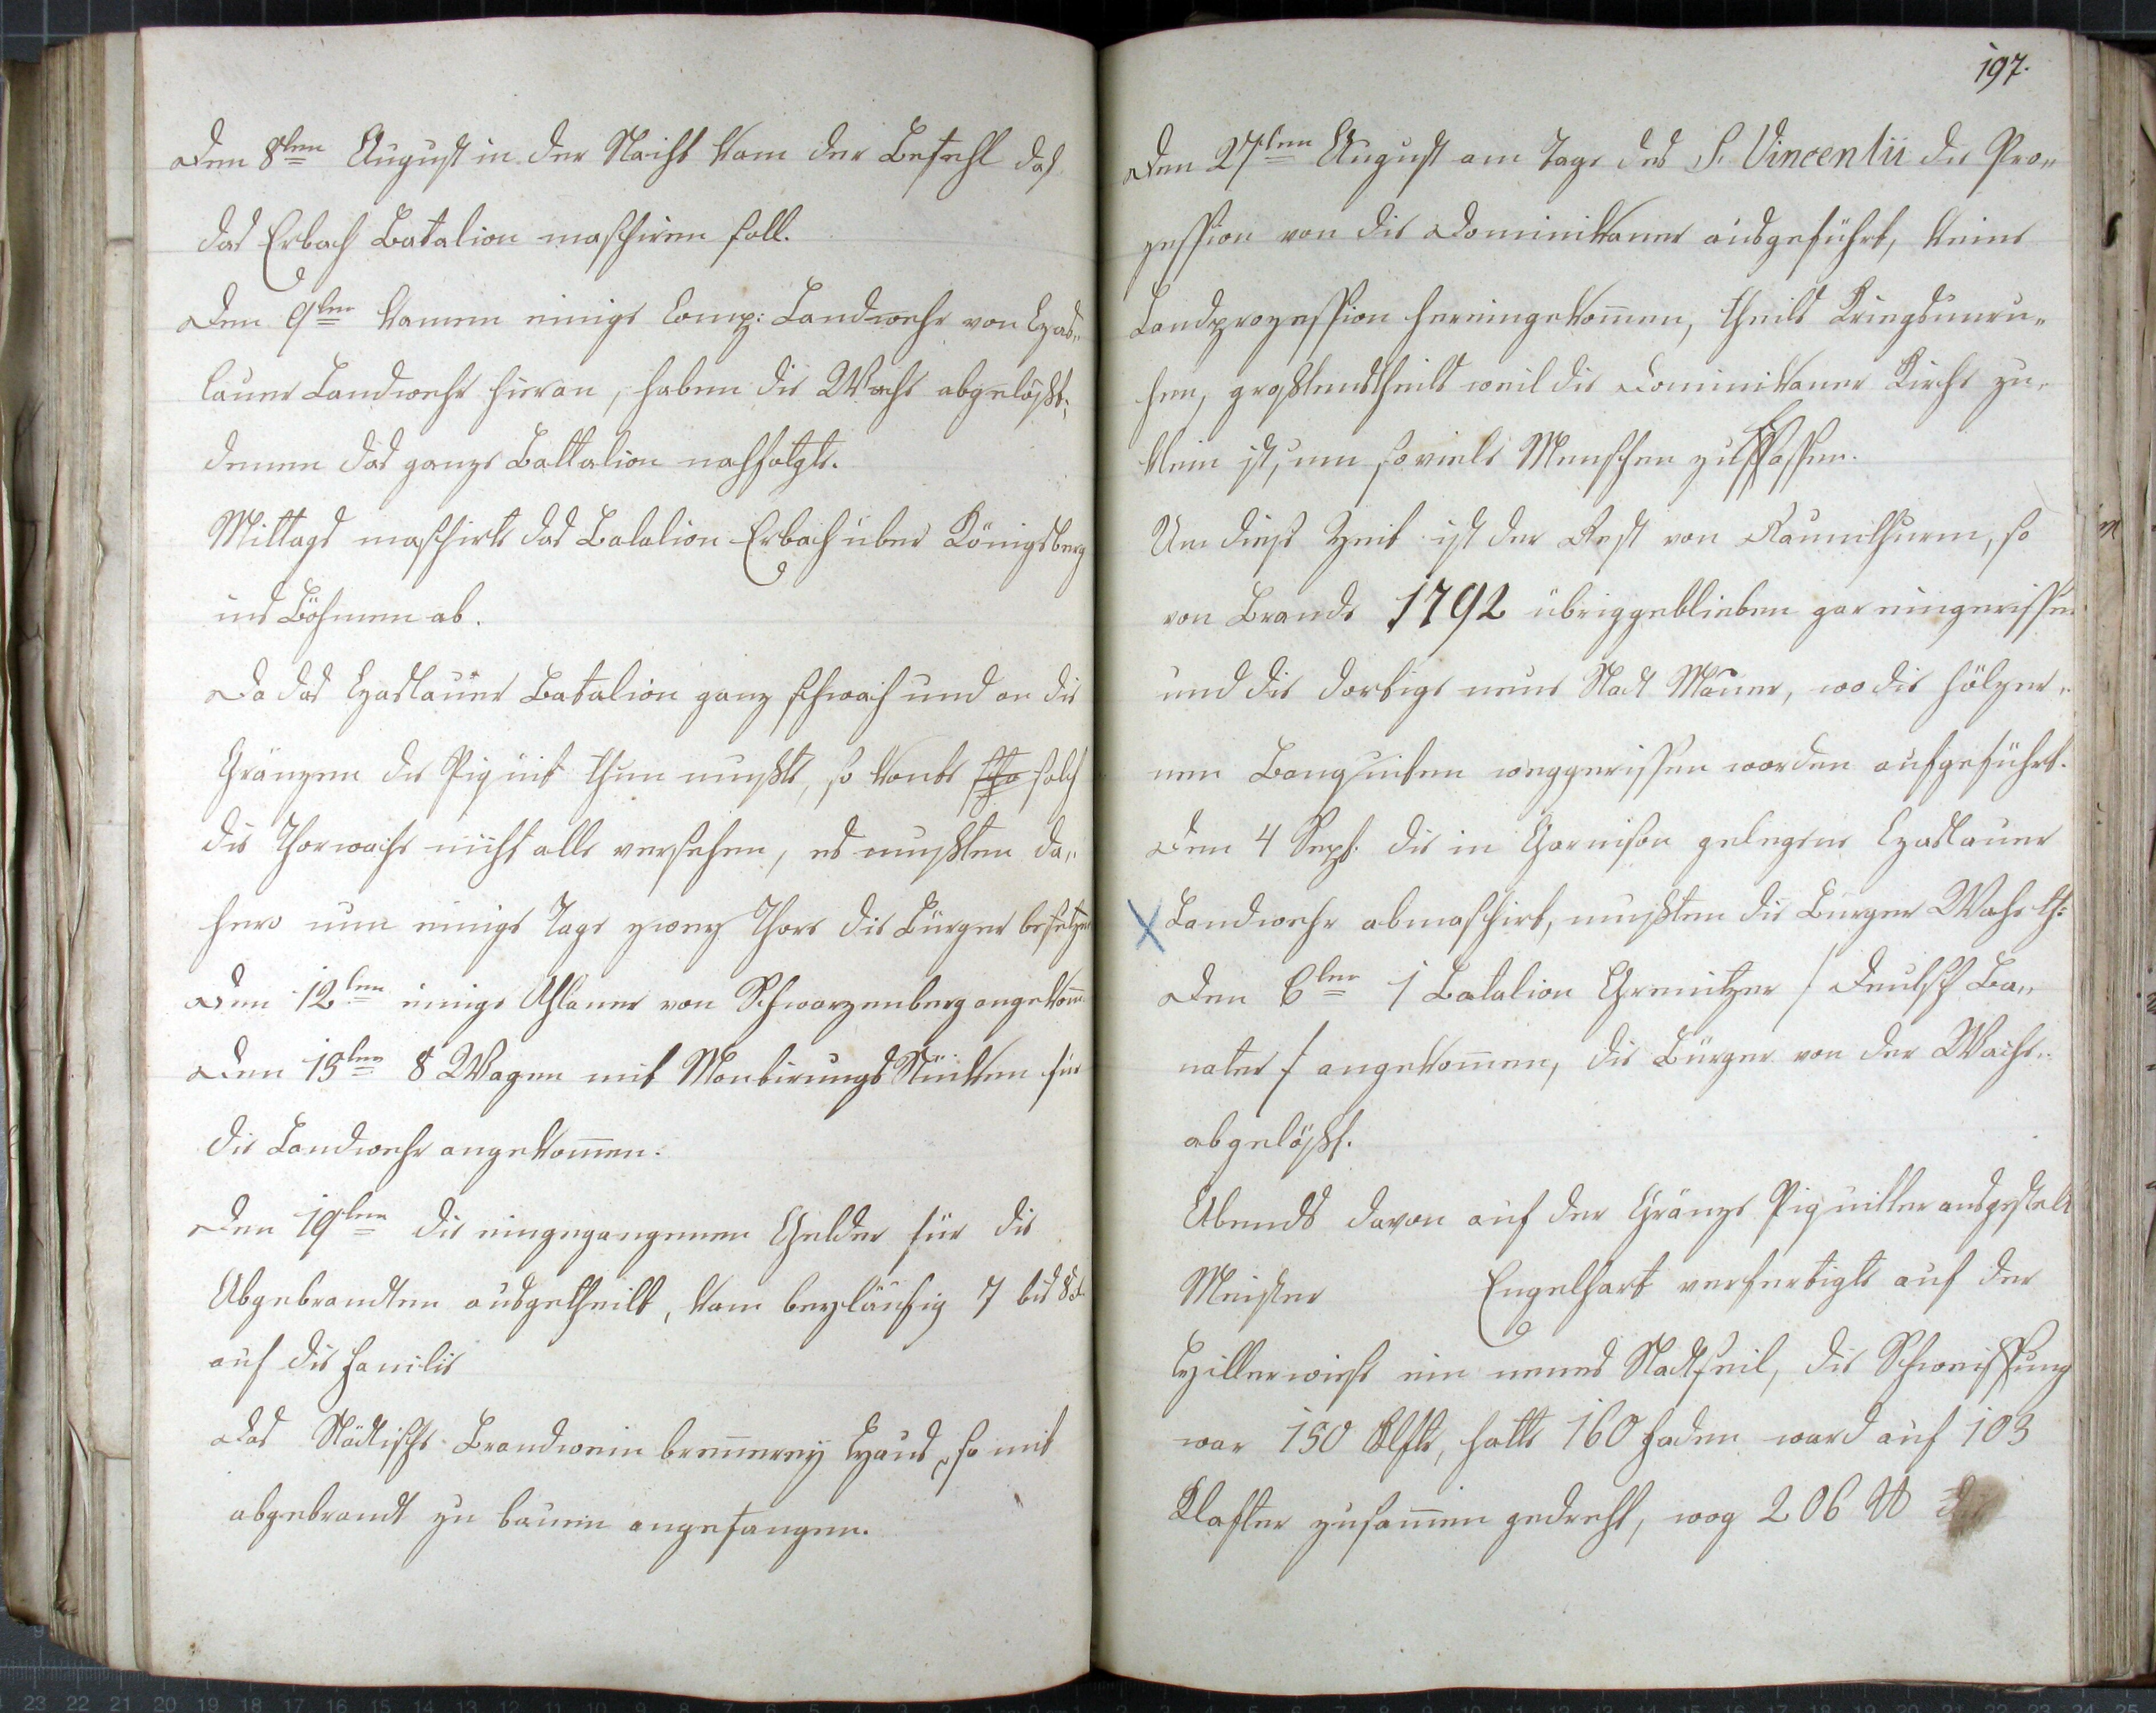 Den 8ten August in der Nacht kam der Befehl daß
das Erbach Batalion maschiren soll.
Den 9ten kamen einige Comp: Landwehr von Czas„
lauer Landwehr hieran, haben die Wacht abgelößt,
denen das ganze Battalion nachfolgte.
Mittags maschirte das Batalion Erbach über Königsberg
ins Böhmen ab.
Da das Czaslauer Batalion ganz schwach und an die
Gränzen die Piquit thun mußte, so konte solch
die Thorwacht nicht alle versehen, es mußten da„
hero nun einige Tage zwey Thore die Bürger besetzen
Den 12ten einige Uhlaner von Schwarzenberg angekom̅
Den 15ten 8 Wagen mit Montirungs Stücken für
die Landwehr angekom̅en.
Den 19ten die eingegangenen Gelder für die
Abgebrandten ausgetheilt, kam beyläufig 7 bis 8 f
auf die Familie
Das Städtische Brandwein breñerey Haus, so mit
abgebrandt zu bauen angefangen.
197.
Den 27ten August am Tage des S. Vincentii die Pro„
zession von die Dominikaner ausgeführt, keine
Landprozession hereingekom̅en, theils Kriegsunru„
hen, großtentheils weil die Dominikaner Kirche zu„
klein ist, um so viele Menschen zu fassen.
Um diese Zeit ist der Rest von Raumthurm, so
von Brande 1792 übriggeblieben gar eingerissen
und die dortige neue Stadt Mauer, wo die hölzer„
nen Banquiten weggerissen worden aufgeführt.
Den 4 Sept. die in Garnison gelegene Czaslauer
Landwehr abmaschirt, mußten die Burger Wache th:
Den 6ten 1 Batalion Grenitzer / Deutsch Ba„
nater / angekom̅en, die Bürger von der Wacht„
abgelößt.
Abends davon auf der Gränze Piquitter ausgestelt
Meister Engelhart verfertigte auf der
ein neues Stadtseil, die Schweissung
war 150 Klfte, hatte 160 Faden ward auf 103
Klafter zusam̅en gedreht, wog 206 ℔ die